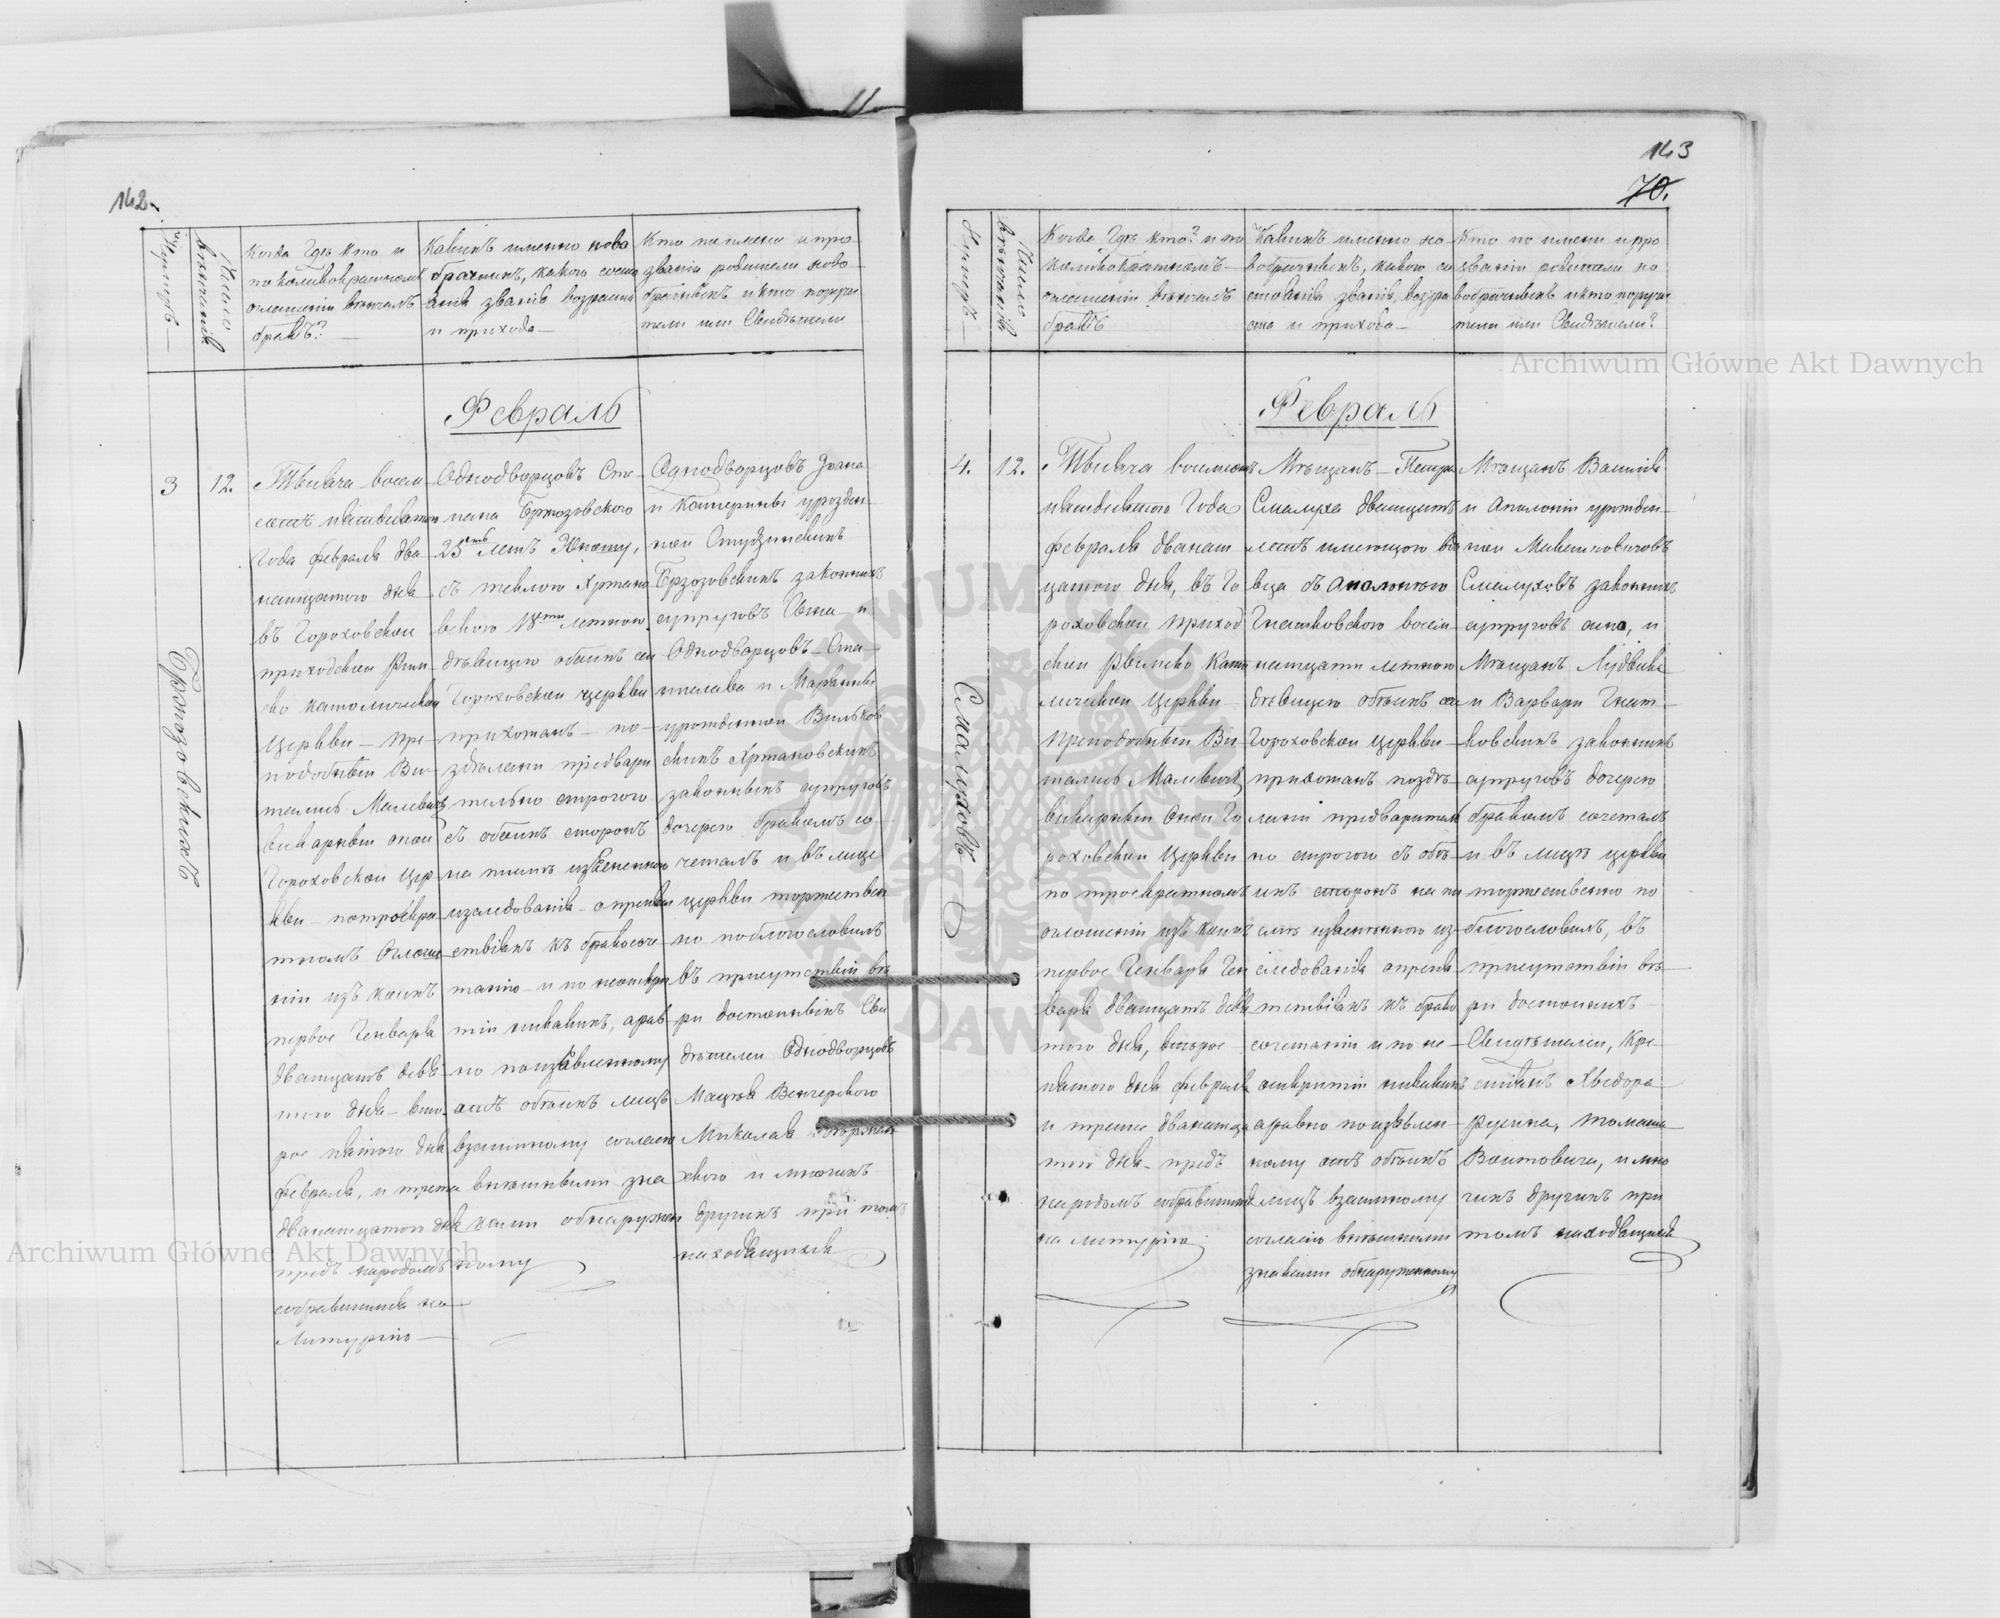 142.
Нумеръ
Число
вѣнчанія
Когда Гдѣ Кто и
по коликократномъ
оглашеніи вѣнчалъ
бракъ?
Какихъ именно ново
брачныхъ, какого состо
янія званія возраста
и прихода
Кто по имени и про
званіи родители ново
брачныхъ и кто поручи
тели или Свидѣтели
Февраль
3
12.
Бржозовскихъ
Тысяча восем
сотъ
Года Февраля два
надцатого дня
въ Гороховской
приходской Рим
ско католической
Церкви — пре
подобный Ви
талисъ Малевичъ
Викарный оной
Гороховской Цер
кви — по троекра
тномъ Оглаше
ніи изъ коихъ
первое Генваря
двадцать девя
того дня — вто
рое пятого дня
Февраля, и третее
двѣнадцатого дня
предъ народомъ
собравшимся на
Литургію
Однодворцовъ Сте
пана Бржозовского
23 лѣтъ Юношу,
съ Теклею Хржано
вского 18 летнею
дѣвицею обоихъ сей
Гороховской Церкви
прихожан — по
здѣлани предвари
тельно строгого
съ обоихъ сторонъ
на письмѣ
изследованія о препят
ствіяхъ къ бракосоче
танію — и по неоткры
тіи никакихъ, а рав
но по изъявленному
отъ обоихъ лицъ
взаимному согласію
внѣшными зна
ками обнаружен
ному
Однодворцовъ Іоана
и Катерины урожден
ной Студзинскихъ
Бржозовскихъ законныхъ
супруговъ Сына — и
Однодворцовъ — Ста
нислава и Маріанны
урожденной Вильков
скихъ Хржановскихъ
законныхъ супруговъ
дочерею бракомъ со
четалъ и въ лице
Церкви торжествен
но поблогословилъ
въ присутствіи вѣ
ри достойныхъ Сви
дѣтелей Однодворцовъ
Мацѣя Венгерского
Миколая
ского и многихъ
другихъ при томъ
находящихся
143
70.
Нумеръ
Число
вѣнчанія
Когда Гдѣ Кто? и по
коликократномъ
оглашеніи вѣнчалъ
бракъ
Какихъ именно но
вобрачныхъ, какого со
стоянія званія, возра
ста и прихода
Кто по имени и про
званіи родители но
вобрачныхъ и кто поручи
тели или Свидѣтели?
Февраль
4.
12.
Смалюховъ
Тысяча восемсотъ
Года
Февраля двѣнад
цатого дня, въ Го
роховской приход
ской Римско Като
лической Церкви
Преподобный Ви
талисъ Малевичъ
Викарный Оной Го
роховской Церкви
по троекратномъ
оглошеніи изъ коихъ
первое Генваря
двадцать девя
того дня, второе
пятого дня Февраля
и третее двѣнадца
того дня — предъ
народомъ собравшимся
на Литургію
Мѣщанъ — Петра
Смалюха двадцать
летъ имеющого вдо
вца съ Аполоніею
Гнатковского восем
надцати летнею
дѣвицею обоихъ сей
Гороховской Церкви
прихожанъ поздѣ
лани предваритель
но строгого съ обо
ихъ сторонъ на пи
из
следованія о препя
тствіяхъ къ брако
сочетаніи и по не
открытіи никакихъ
а равно по изъявлен
ному отъ обоихъ
лицъ взаимному
согласію внѣшними
знаками обнаруженному
Мѣщанъ Василія
и Аполоніи урожден
ной
Смалюховъ законныхъ
супруговъ сына, и
Мѣщанъ Людвика
и Варвари Гнат
ковскихъ законныхъ
супруговъ дочерею
бракомъ сочеталъ
и въ лицѣ Церкви
торжественно по
блогословилъ, въ
присутствіи вѣ
ри достойныхъ
Свидѣтелей, Кре
стьянъ Хведора
Томаша
Войтовича, и мно
гихъ другихъ при
томъ находящихся
Archiwum Główne Akt Dawnych
Archiwum Główne Akt Dawnych